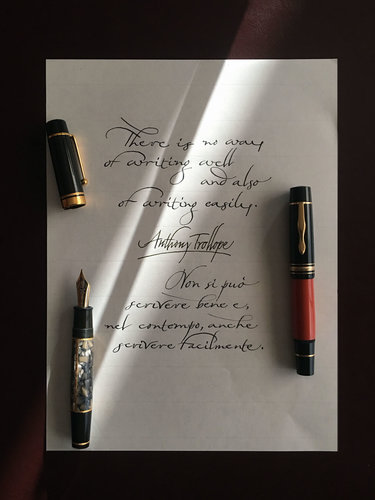 There is no way
of writing well
and also
of writing easily.
Anthony Trollope
Non si può
scrivere bene e,
nel contempo, anche
scrivere facilmente.